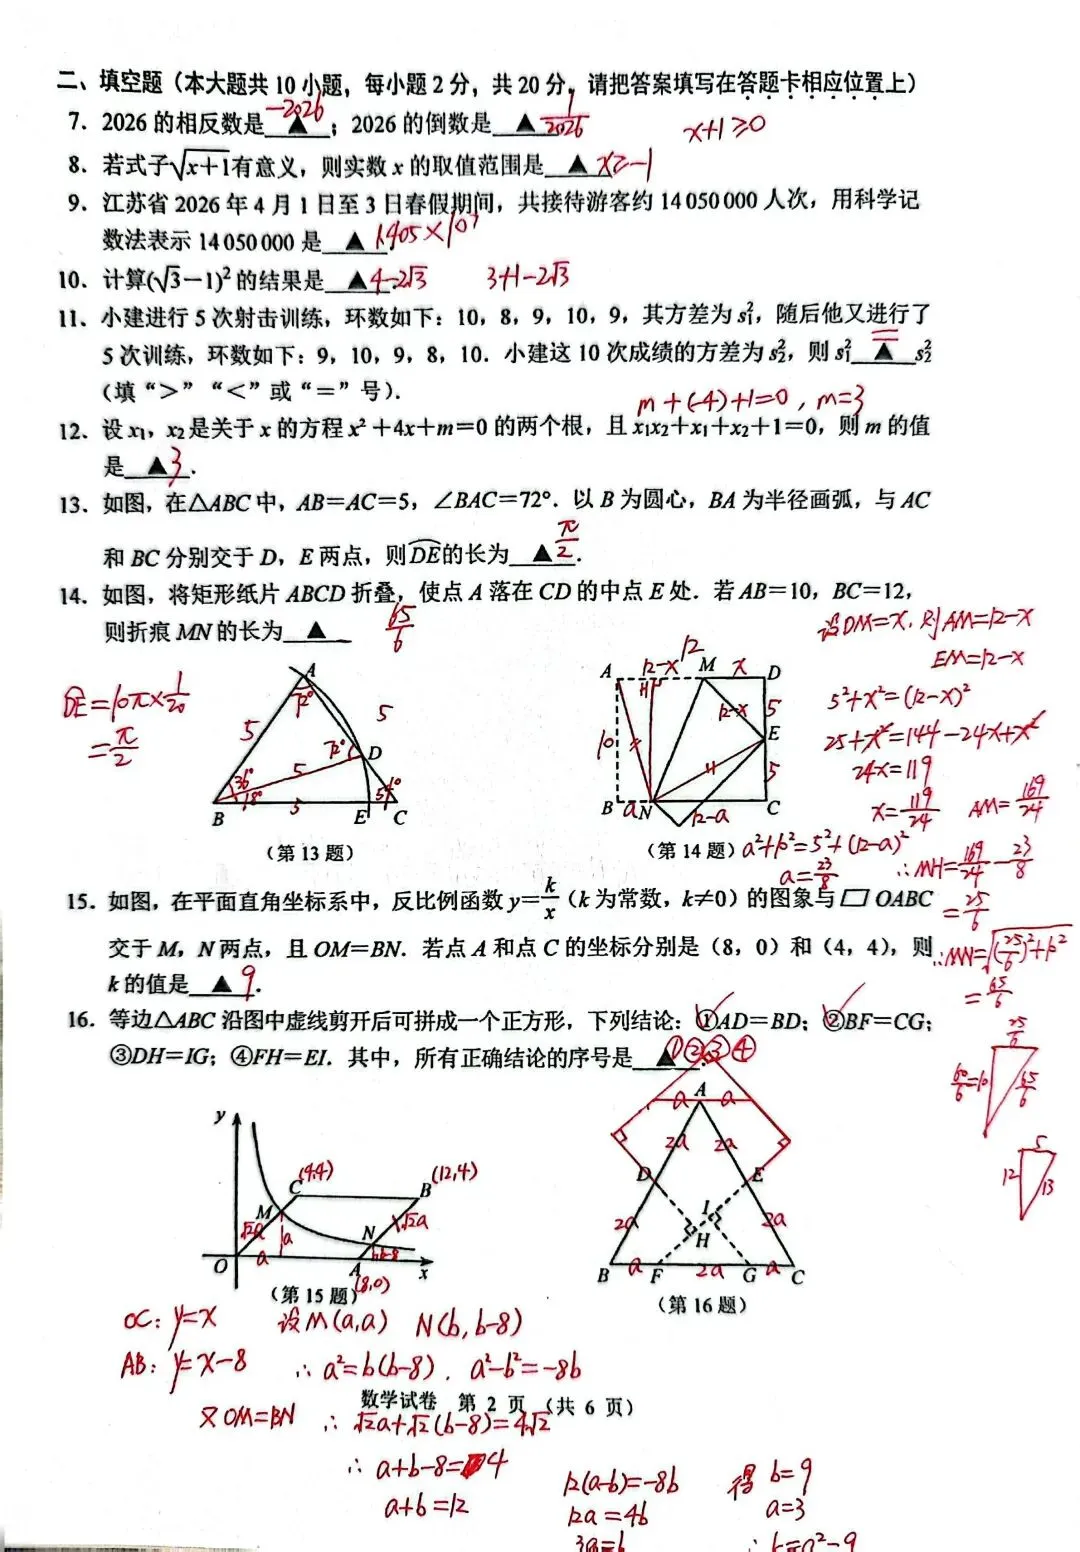 二、填空题（本大题共 10 小题，每小题 2 分，共 20 分。请把答案填写在答题卡相应位置上）
7．2026 的相反数是 ▲ -2026 ；2026 的倒数是 ▲ 1/2026
x+1≥0
8．若式子√(x+1)有意义，则实数 x 的取值范围是 ▲ x≥-1
9．江苏省 2026 年 4 月 1 日至 3 日春假期间，共接待游客约 14 050 000 人次，用科学记
数法表示 14 050 000 是 ▲ 1.405×10⁷
10．计算(√3－1)² 的结果是 ▲ 4-2√3
3+1-2√3
11．小建进行 5 次射击训练，环数如下：10，8，9，10，9，其方差为 s₁²，随后他又进行了
5 次训练，环数如下：9，10，9，8，10．小建这 10 次成绩的方差为 s₂²，则 s₁² ▲ = s₂²
（填“>”“<”或“=”号）．
m+(-4)+1=0，m=3
12．设 x₁，x₂ 是关于 x 的方程 x²+4x+m=0 的两个根，且 x₁x₂+x₁+x₂+1=0，则 m 的值
是 ▲ 3 ．
13．如图，在△ABC 中，AB=AC=5，∠BAC=72°．以 B 为圆心，BA 为半径画弧，与 AC
和 BC 分别交于 D，E 两点，则 DE⌒ 的长为 ▲ π/2 ．
14．如图，将矩形纸片 ABCD 折叠，使点 A 落在 CD 的中点 E 处．若 AB=10，BC=12，
则折痕 MN 的长为 ▲ 65/6
DE⌒=10π×1/20
=π/2
A 72° 5 5 72° D 5 36° 18° 54° B 5 E C
（第 13 题）
12
A 12-x M x D
H 12-x 5
10 E
5
B a N 12-a C
（第 14 题）
设DM=x，则AM=12-x
EM=12-x
5²+x²=(12-x)²
25+x²=144-24x+x²
24x=119
x=119/24 AM=169/24
a²+10²=5²+(12-a)²
a=23/8
∴MH=169/24-23/8
=25/6
∴MN=√((25/6)²+10²)
=65/6
15．如图，在平面直角坐标系中，反比例函数 y=k/x（k 为常数，k≠0）的图象与▱OABC
交于 M，N 两点，且 OM=BN．若点 A 和点 C 的坐标分别是（8，0）和（4，4），则
k 的值是 ▲ 9 ．
16．等边△ABC 沿图中虚线剪开后可拼成一个正方形，下列结论：①AD=BD；②BF=CG；
③DH=IG；④FH=EI．其中，所有正确结论的序号是 ▲ ①②③④ ．
25/6
60/6=10 65/6
5
12 13
y
(4,4) (12,4)
C B
M √2a √2a
a N
O a A b-8 x
(8,0)
（第 15 题）
a A a
2a 2a
D E
2a I 2a
H
B a F 2a G a C
（第 16 题）
OC：y=x 设M(a,a) N(b,b-8)
AB：y=x-8 ∴a²=b(b-8)．a²-b²=-8b
数学试卷 第 2 页（共 6 页）
又OM=BN ∴√2a+√2(b-8)=4√2
∴a+b-8=4
a+b=12
12(a-b)=-8b
12a=4b
3a=b
得 b=9
a=3
∴k=a²=9